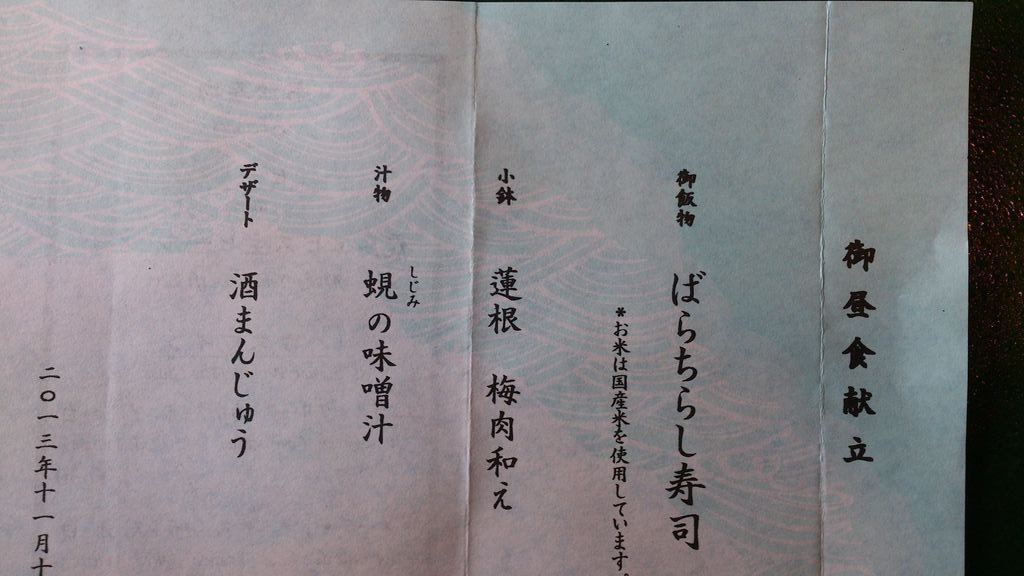 御昼食献立
御飯物 ばらちらし寿司
*お米は国産米を使用しています。
小鉢 蓮根 梅肉和え
しじみ
汁物 蜆の味噌汁
デザート 酒まんじゅう
二〇一三年十一月十